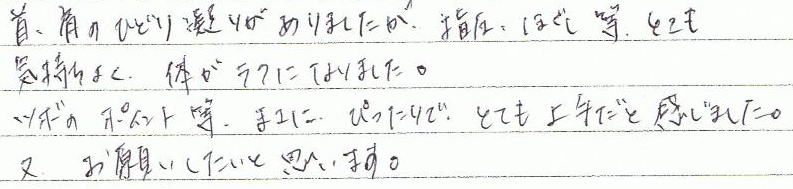 首、肩のひどい凝りがありましたが、指圧、ほぐし等、とても
気持ちよく、体がラクになりました。
ツボのポイント等、まさに、ぴったりで、とても上手だと感じました。
又、お願いしたいと思います。